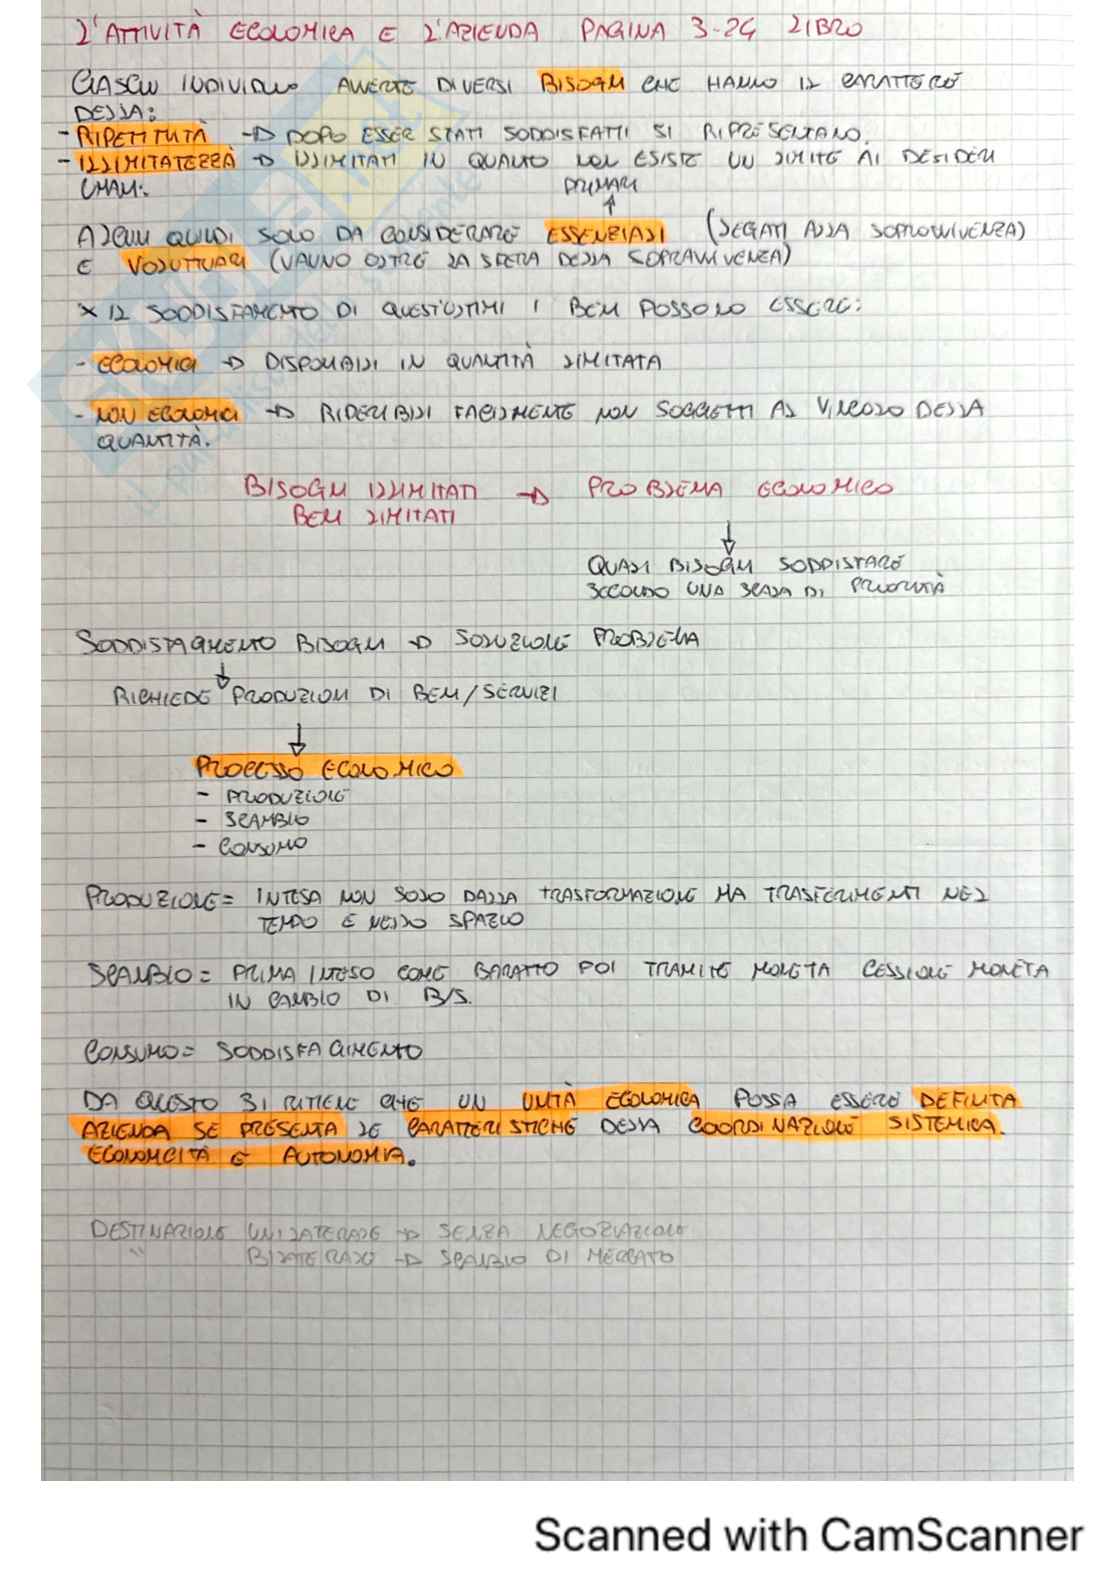 L'ATTIVITÀ ECONOMICA E L'AZIENDA PAGINA 3-24 LIBRO
CIASCUN INDIVIDUO AVVERTE DIVERSI BISOGNI CHE HANNO IL CARATTERE
DELLA:
- RIPETITUTÀ → DOPO ESSER STATI SODDISFATTI SI RIPRESENTANO.
- ILLIMITATEZZA → ILLIMITATI IN QUANTO NON ESISTE UN LIMITE AI DESIDERI
UMANI.
PRIMARI
↑
ALCUNI QUINDI SOLO DA CONSIDERARE ESSENZIALI (LEGATI ALLA SOPRAVVIVENZA)
E VOLUTTUARI (VANNO OLTRE LA SFERA DELLA SOPRAVVIVENZA)
X IL SODDISFAMENTO DI QUEST'ULTIMI I BENI POSSONO ESSERE:
- ECONOMICI → DISPONIBILI IN QUANTITÀ LIMITATA
- NON ECONOMICI → RIPERIBILI FACILMENTE NON SOGGETTI AL VINCOLO DELLA
QUANTITÀ.
BISOGNI ILLIMITATI → PROBLEMA ECONOMICO
BENI LIMITATI
↓
QUALI BISOGNI SODDISFARE
SECONDO UNA SCALA DI PRIORITÀ
SODDISFACIMENTO BISOGNI → SOLUZIONE PROBLEMA
↓
RICHIEDE PRODUZIONI DI BENI/SERVIZI
↓
PROCESSO ECONOMICO
- PRODUZIONE
- SCAMBIO
- CONSUMO
PRODUZIONE = INTESA NON SOLO DALLA TRASFORMAZIONE MA TRASFERIMENTI NEL
TEMPO E NELLO SPAZIO
SCAMBIO = PRIMA INTESO COME BARATTO POI TRAMITE MONETA CESSIONE MONETA
IN CAMBIO DI B/S.
CONSUMO = SODDISFACIMENTO
DA QUESTO SI RITIENE CHE UN UNITÀ ECONOMICA POSSA ESSERE DEFINITA
AZIENDA SE PRESENTA LE CARATTERISTICHE DELLA COORDINAZIONE SISTEMICA.
ECONOMICITÀ E AUTONOMIA.
DESTINAZIONE UNILATERALE → SENZA NEGOZIAZIONE
" BILATERALE → SCAMBIO DI MERCATO
Scanned with CamScanner